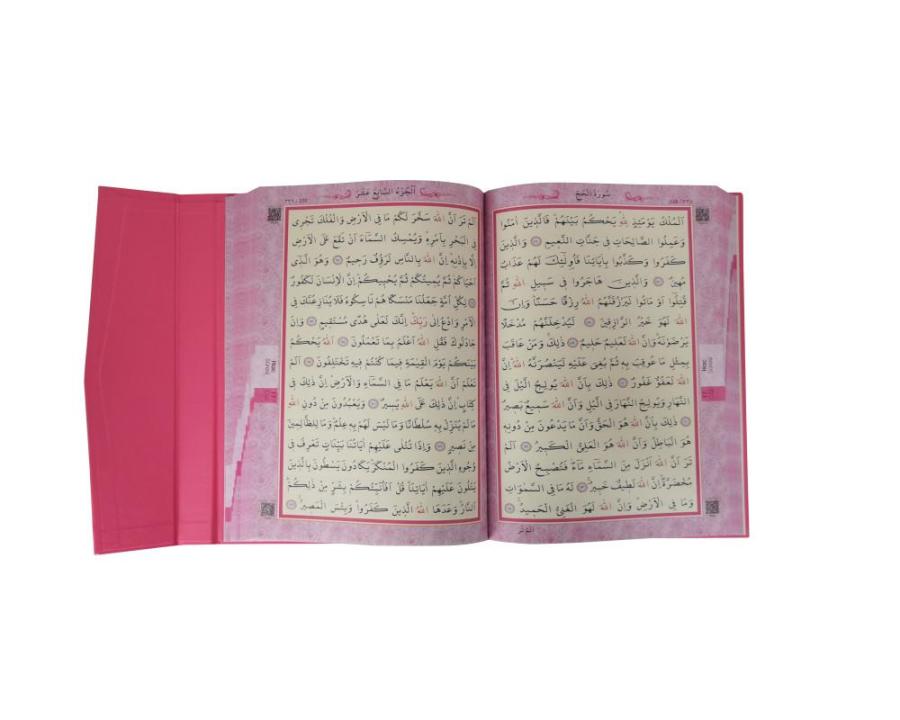 سُورَةُ الْحَجِّ
اَلْمُلْكُ يَوْمَئِذٍ لِلّٰهِ يَحْكُمُ بَيْنَهُمْ فَالَّذِينَ اٰمَنُوا
وَعَمِلُوا الصَّالِحَاتِ فِي جَنَّاتِ النَّعِيمِ وَالَّذِينَ
كَفَرُوا وَكَذَّبُوا بِاٰيَاتِنَا فَاُولٰٓئِكَ لَهُمْ عَذَابٌ
مُهِينٌ وَالَّذِينَ هَاجَرُوا فِي سَبِيلِ اللّٰهِ ثُمَّ
قُتِلُوا اَوْ مَاتُوا لَيَرْزُقَنَّهُمُ اللّٰهُ رِزْقًا حَسَنًا وَاِنَّ
اللّٰهَ لَهُوَ خَيْرُ الرَّازِقِينَ لَيُدْخِلَنَّهُمْ مُدْخَلًا
يَرْضَوْنَهُ وَاِنَّ اللّٰهَ لَعَلِيمٌ حَلِيمٌ ذٰلِكَ وَمَنْ عَاقَبَ
بِمِثْلِ مَا عُوقِبَ بِهِ ثُمَّ بُغِيَ عَلَيْهِ لَيَنْصُرَنَّهُ اللّٰهُ اِنَّ
اللّٰهَ لَعَفُوٌّ غَفُورٌ ذٰلِكَ بِاَنَّ اللّٰهَ يُولِجُ الَّيْلَ فِي
النَّهَارِ وَيُولِجُ النَّهَارَ فِي الَّيْلِ وَاَنَّ اللّٰهَ سَمِيعٌ بَصِيرٌ
ذٰلِكَ بِاَنَّ اللّٰهَ هُوَ الْحَقُّ وَاَنَّ مَا يَدْعُونَ مِنْ دُونِهِ
هُوَ الْبَاطِلُ وَاَنَّ اللّٰهَ هُوَ الْعَلِيُّ الْكَبِيرُ اَلَمْ
تَرَ اَنَّ اللّٰهَ اَنْزَلَ مِنَ السَّمَٓاءِ مَٓاءً فَتُصْبِحُ الْاَرْضُ
مُخْضَرَّةً اِنَّ اللّٰهَ لَطِيفٌ خَبِيرٌ لَهُ مَا فِي السَّمٰوَاتِ
وَمَا فِي الْاَرْضِ وَاِنَّ اللّٰهَ لَهُوَ الْغَنِيُّ الْحَمِيدُ
اَلَمْ تَرَ
اَلْجُزْءُ السَّابِعَ عَشَرَ
اَلَمْ تَرَ اَنَّ اللّٰهَ سَخَّرَ لَكُمْ مَا فِي الْاَرْضِ وَالْفُلْكَ تَجْرِي
فِي الْبَحْرِ بِاَمْرِهِ وَيُمْسِكُ السَّمَٓاءَ اَنْ تَقَعَ عَلَى الْاَرْضِ
اِلَّا بِاِذْنِهِ اِنَّ اللّٰهَ بِالنَّاسِ لَرَؤُفٌ رَحِيمٌ وَهُوَ الَّذِٓي
اَحْيَاكُمْ ثُمَّ يُمِيتُكُمْ ثُمَّ يُحْيِيكُمْ اِنَّ الْاِنْسَانَ لَكَفُورٌ
لِكُلِّ اُمَّةٍ جَعَلْنَا مَنْسَكًا هُمْ نَاسِكُوهُ فَلَا يُنَازِعُنَّكَ فِي
الْاَمْرِ وَادْعُ اِلٰى رَبِّكَ اِنَّكَ لَعَلٰى هُدًى مُسْتَقِيمٍ وَاِنْ
جَادَلُوكَ فَقُلِ اللّٰهُ اَعْلَمُ بِمَا تَعْمَلُونَ اَللّٰهُ يَحْكُمُ
بَيْنَكُمْ يَوْمَ الْقِيٰمَةِ فِيمَا كُنْتُمْ فِيهِ تَخْتَلِفُونَ اَلَمْ
تَعْلَمْ اَنَّ اللّٰهَ يَعْلَمُ مَا فِي السَّمَٓاءِ وَالْاَرْضِ اِنَّ ذٰلِكَ فِي
كِتَابٍ اِنَّ ذٰلِكَ عَلَى اللّٰهِ يَسِيرٌ وَيَعْبُدُونَ مِنْ دُونِ اللّٰهِ
مَا لَمْ يُنَزِّلْ بِهِ سُلْطَانًا وَمَا لَيْسَ لَهُمْ بِهِ عِلْمٌ وَمَا لِلظَّالِمِينَ
مِنْ نَصِيرٍ وَاِذَا تُتْلٰى عَلَيْهِمْ اٰيَاتُنَا بَيِّنَاتٍ تَعْرِفُ فِي
وُجُوهِ الَّذِينَ كَفَرُوا الْمُنْكَرَ يَكَادُونَ يَسْطُونَ بِالَّذِينَ
يَتْلُونَ عَلَيْهِمْ اٰيَاتِنَا قُلْ اَفَاُنَبِّئُكُمْ بِشَرٍّ مِنْ ذٰلِكُمْ
اَلنَّارُ وَعَدَهَا اللّٰهُ الَّذِينَ كَفَرُوا وَبِئْسَ الْمَصِيرُ